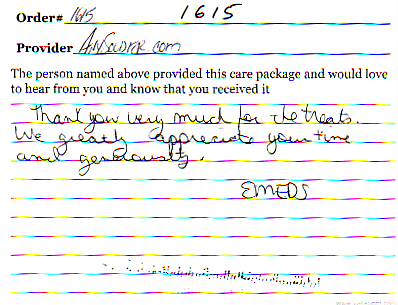 Order# 1615 1615
Provider AnSoldier.com
The person named above provided this care package and would love
to hear from you and know that you received it
Thank you very much for the treats.
We greatly appreciate your time
and
EMEDS